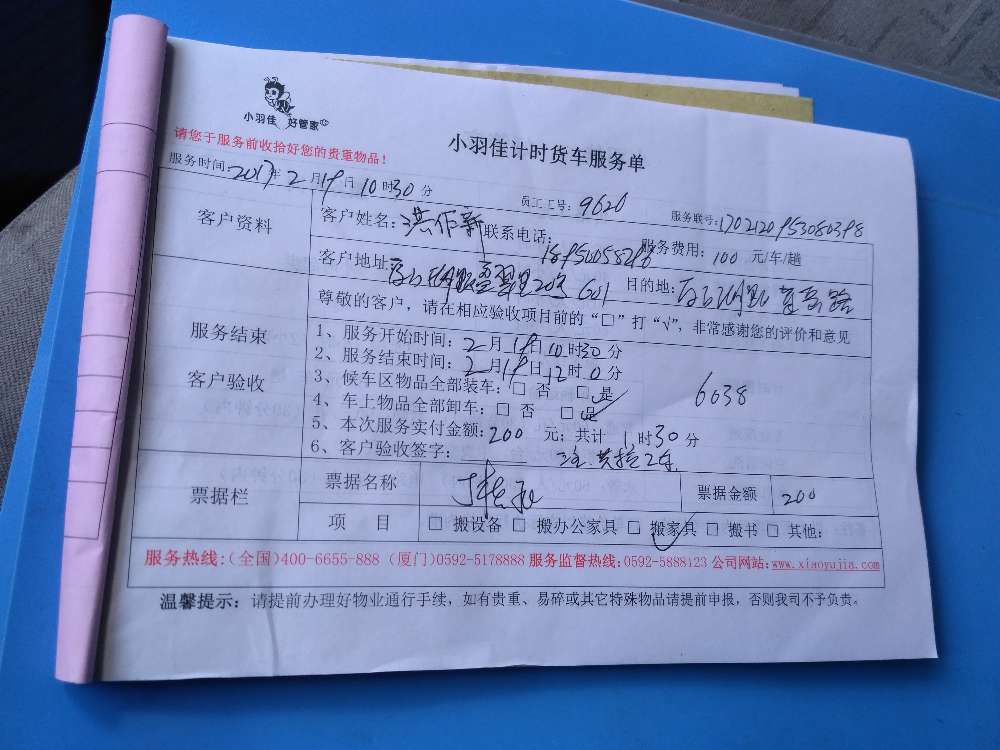 小羽佳 好管家
小羽佳计时货车服务单
请您于服务前收拾好您的贵重物品！
服务时间：2017年2月19日10时30分 员工工号：9620 服务联号：
客户资料
客户姓名：洪作新 联系电话： 服务费用：100 元/车/趟
客户地址： 601 目的地：
尊敬的客户，请在相应验收项目前的“□”打“√”，非常感谢您的评价和意见
服务结束
客户验收
1、服务开始时间：2月19日10时30分
2、服务结束时间：2月19日12时0分
3、候车区物品全部装车：□ 否 □ 是
4、车上物品全部卸车：□ 否 □ 是
6038
5、本次服务实付金额：200 元；共计 1时30分
6、客户验收签字：
票据栏
票据名称 票据金额 200
项 目 □ 搬设备 □ 搬办公家具 □ 搬家具 □ 搬书 □ 其他：
服务热线：(全国)400-6655-888 (厦门)0592-5178888 服务监督热线：0592-5888123 公司网站：www.xiaoyujia.com
温馨提示：请提前办理好物业通行手续，如有贵重、易碎或其它特殊物品请提前申报，否则我司不予负责。